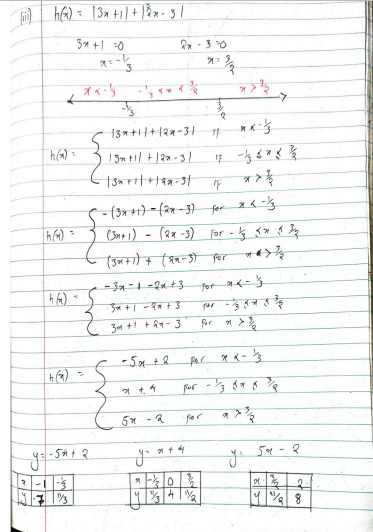 (iii) h(x) = |3x+1| + |2x-3|
3x+1 = 0 2x-3=0
x = -1/3 x = 3/2
x < -1/3 -1/3 < x < 3/2 x > 3/2
-1/3 3/2
h(x) = { |3x+1| + |2x-3| if x < -1/3
|3x+1| + |2x-3| if -1/3 ≤ x ≤ 3/2
|3x+1| + |2x-3| if x > 3/2
h(x) = { -(3x+1) - (2x-3) for x < -1/3
(3x+1) - (2x-3) for -1/3 ≤ x ≤ 3/2
(3x+1) + (2x-3) for x > 3/2
h(x) = { -3x-1 -2x+3 for x < -1/3
3x+1 -2x+3 for -1/3 ≤ x ≤ 3/2
3x+1 +2x-3 for x > 3/2
h(x) = { -5x+2 for x < -1/3
x+4 for -1/3 ≤ x ≤ 3/2
5x-2 for x > 3/2
y = -5x+2 y = x+4 y = 5x-2
x -1 -1/3 x -1/3 0 3/2 x 3/2 2
y 7 11/3 y 11/3 4 11/2 y 11/2 8